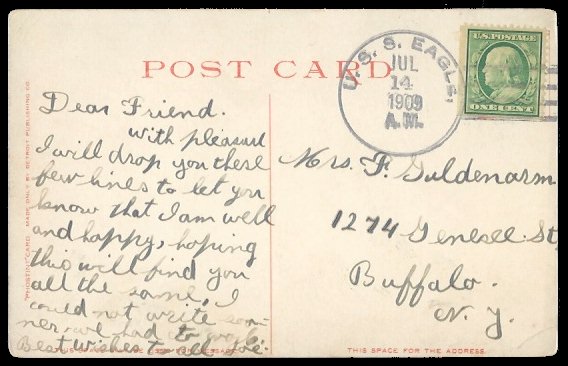 POST CARD
U.S.S. EAGLE,
JUL
14
1909
A.M.
U.S. POSTAGE
ONE CENT
Dear Friend.
with pleasure
I will drop you these
few lines to let you
know that I am well
and happy, hoping
this will find you
all the same, I
could not write soo-
ner we had to work
Best wishes to all
Mrs. F. Guldenarm
1274 Genesee St
Buffalo.
N. Y.
THIS SPACE FOR THE ADDRESS
"PHOSTINT" CARD MADE ONLY BY DETROIT PUBLISHING CO.